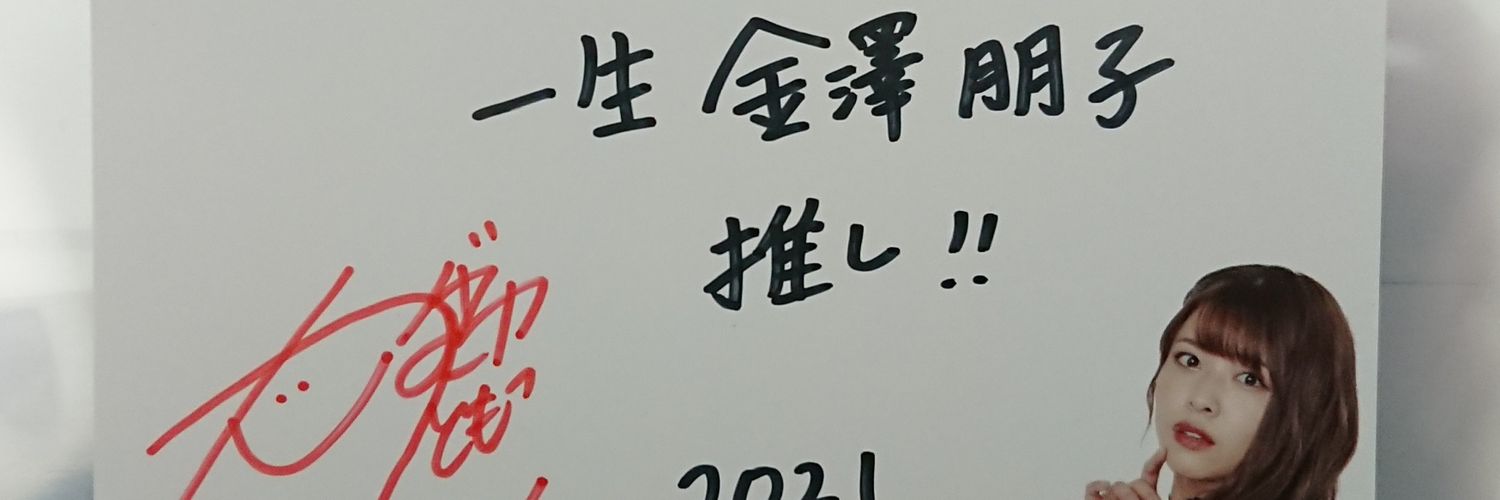 一生 金澤 朋子
推し!!
2021